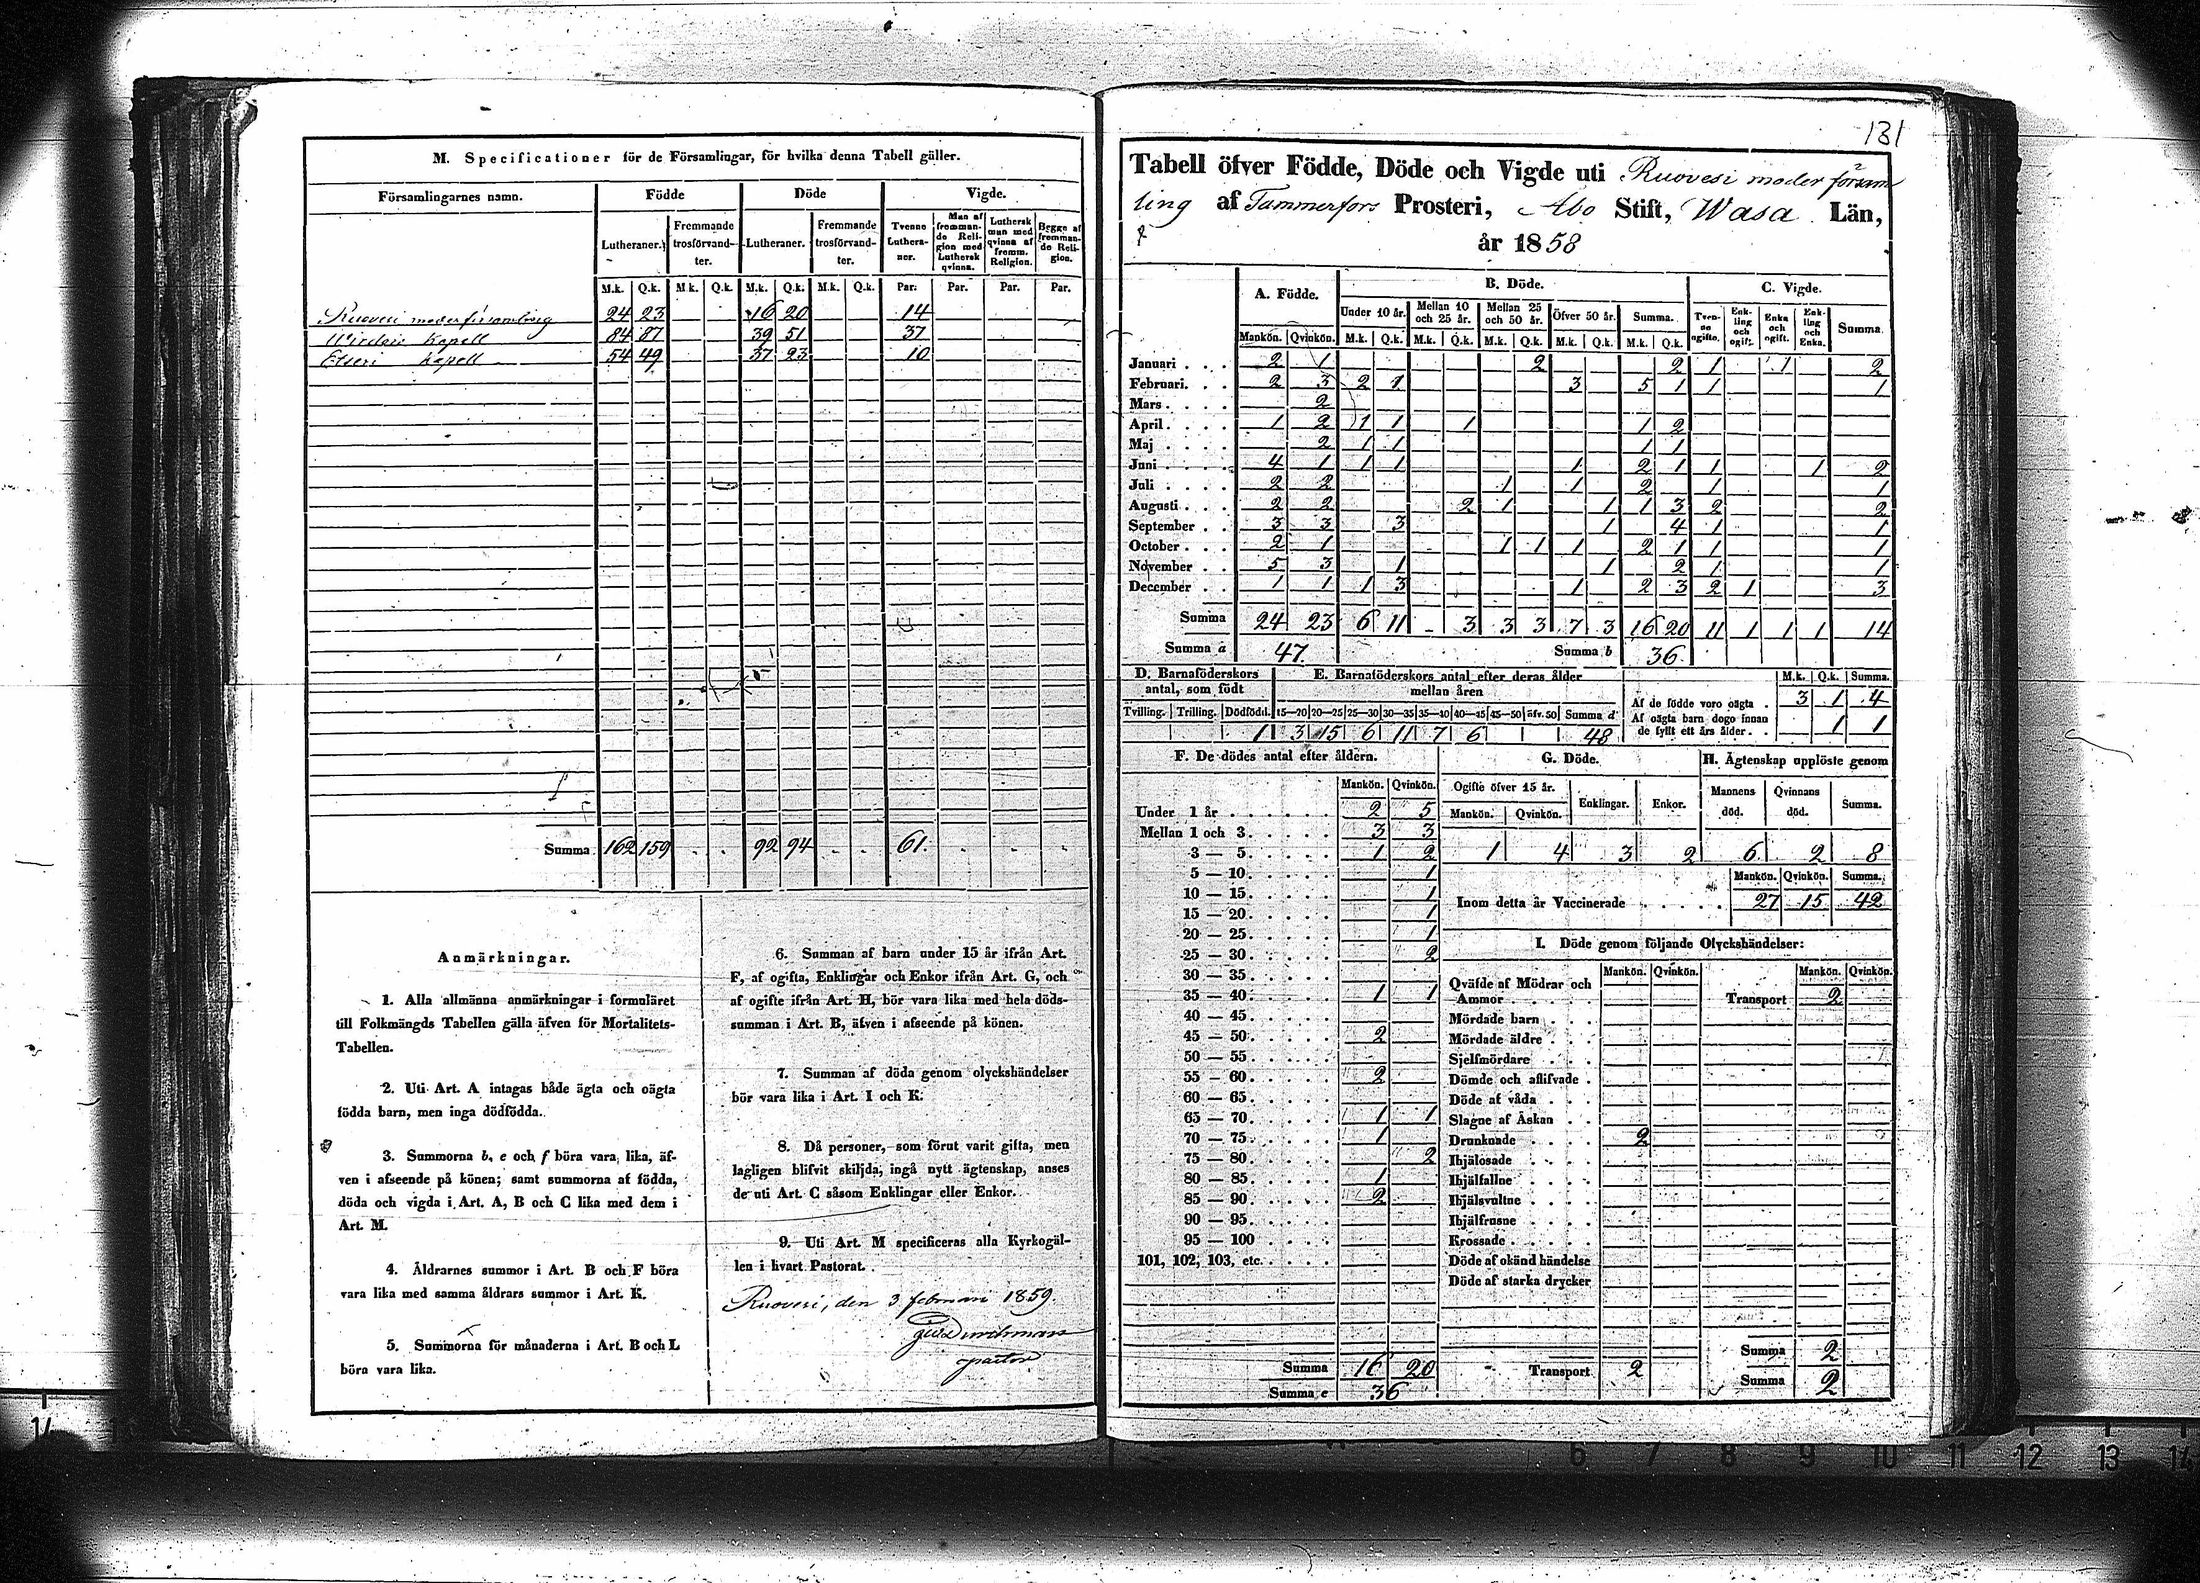 M. Specificationer för de Församlingar, för hvilka denna Tabell gäller.
Församlingarnes namn. Födde Döde Vigde.
Lutheraner. Fremmande trosförvandter. Lutheraner. Fremmande trosförvandter. Tvenne Lutheraner. Man af fremmande Religion med Luthersk qvinna. Luthersk man med qvinna af fremm. Religion. Begge af fremmande Religion.
M.k. Q.k. M.k. Q.k. M.k. Q.k. M.k. Q.k. Par: Par. Par. Par.
Ruovesi moderförsamling 24 23 16 20 14
Wirdois Kapell 84 87 39 51 37
Etseri Kapell 54 49 37 23 10
Summa 162 159 . . 92 94 . . 61 . . .
Anmärkningar.
1. Alla allmänna anmärkningar i formuläret
till Folkmängds Tabellen gälla äfven för Mortalitets-
Tabellen.
2. Uti Art. A intagas både ägta och oägta
födda barn, men inga dödfödda.
3. Summorna b, e och f böra vara lika, äf-
ven i afseende på könen; samt summorna af födda,
döda och vigda i Art. A, B och C lika med dem i
Art. M.
4. Åldrarnes summor i Art. B och F böra
vara lika med samma åldrars summor i Art. K.
5. Summorna för månaderna i Art. B och L
böra vara lika.
6. Summan af barn under 15 år ifrån Art.
F, af ogifta, Enklingar och Enkor ifrån Art. G, och
af ogifte ifrån Art. H, bör vara lika med hela döds-
summan i Art. B, äfven i afseende på könen.
7. Summan af döda genom olyckshändelser
bör vara lika i Art. I och K.
8. Då personer, som förut varit gifta, men
lagligen blifvit skiljda, ingå nytt ägtenskap, anses
de uti Art. C såsom Enklingar eller Enkor.
9. Uti Art. M specificeras alla Kyrkogäl-
len i hvart Pastorat.
Ruovesi, den 3 februari 1859.
pastor
131
Tabell öfver Födde, Döde och Vigde uti Ruovesi moder försam
ling af Tammerfors Prosteri, Åbo Stift, Wasa Län,
år 1858
A. Födde. B. Döde. C. Vigde.
Under 10 år. Mellan 10 och 25 år. Mellan 25 och 50 år. Öfver 50 år. Summa. Tvenne ogifte. Enkling och ogift. Enka och ogift. Enkling och Enka. Summa.
Mankön. Qvinkön. M.k. Q.k. M.k. Q.k. M.k. Q.k. M.k. Q.k. M.k. Q.k.
Januari 2 1 2 2 1 1 2
Februari 2 3 2 1 3 5 1 1 1
Mars 2
April 1 2 1 1 1 1 2
Maj 2 1 1 1 1
Juni 4 1 1 1 1 2 1 1 1 2
Juli 2 2 1 1 2 1 1
Augusti 2 2 2 1 1 1 3 2 2
September 3 3 3 1 4 1 1
October 2 1 1 1 1 2 1 1 1
November 5 3 1 1 2 1 1
December 1 1 1 3 1 2 3 2 1 3
Summa 24 23 6 11 - 3 3 3 7 3 16 20 11 1 1 1 14
Summa a 47. Summa b 36.
D. Barnaföderskors antal, som födt
Tvilling. Trilling. Dödfödd.
1
E. Barnaföderskors antal efter deras ålder mellan åren
15—20 20—25 25—30 30—35 35—40 40—45 45—50 öfv. 50 Summa d
3 15 6 11 7 6 48
M.k. Q.k. Summa.
Af de födde voro oägta 3 1 4
Af oägta barn dogo innan de fyllt ett års ålder 1 1
F. De dödes antal efter åldern.
Mankön. Qvinkön.
Under 1 år 2 5
Mellan 1 och 3 3 3
3 — 5 1 2
5 — 10 1
10 — 15 1
15 — 20 1
20 — 25 1
25 — 30 2
30 — 35
35 — 40 1 1
40 — 45
45 — 50 2
50 — 55
55 — 60 2
60 — 65
65 — 70 1 1
70 — 75 1
75 — 80 2
80 — 85 1
85 — 90 2
90 — 95
95 — 100
101, 102, 103, etc.
Summa 16 20
Summa e 36
G. Döde.
Ogifte öfver 15 år. Enklingar. Enkor.
Mankön. Qvinkön.
1 4 3 2
H. Ägtenskap upplöste genom
Mannens död. Qvinnans död. Summa.
6 2 8
Mankön. Qvinkön. Summa.
Inom detta år Vaccinerade 27 15 42
I. Döde genom följande Olyckshändelser:
Mankön. Qvinkön. Mankön. Qvinkön.
Qväfde af Mödrar och Ammor
Transport 2
Mördade barn
Mördade äldre
Sjelfmördare
Dömde och aflifvade
Döde af våda
Slagne af Åskan
Drunknade 2
Ihjälosade
Ihjälfallne
Ihjälsvultne
Ihjälfrusne
Krossade
Döde af okänd händelse
Döde af starka drycker
Summa 2
Transport 2
Summa 2
14 6 7 8 9 10 11 12 13 14